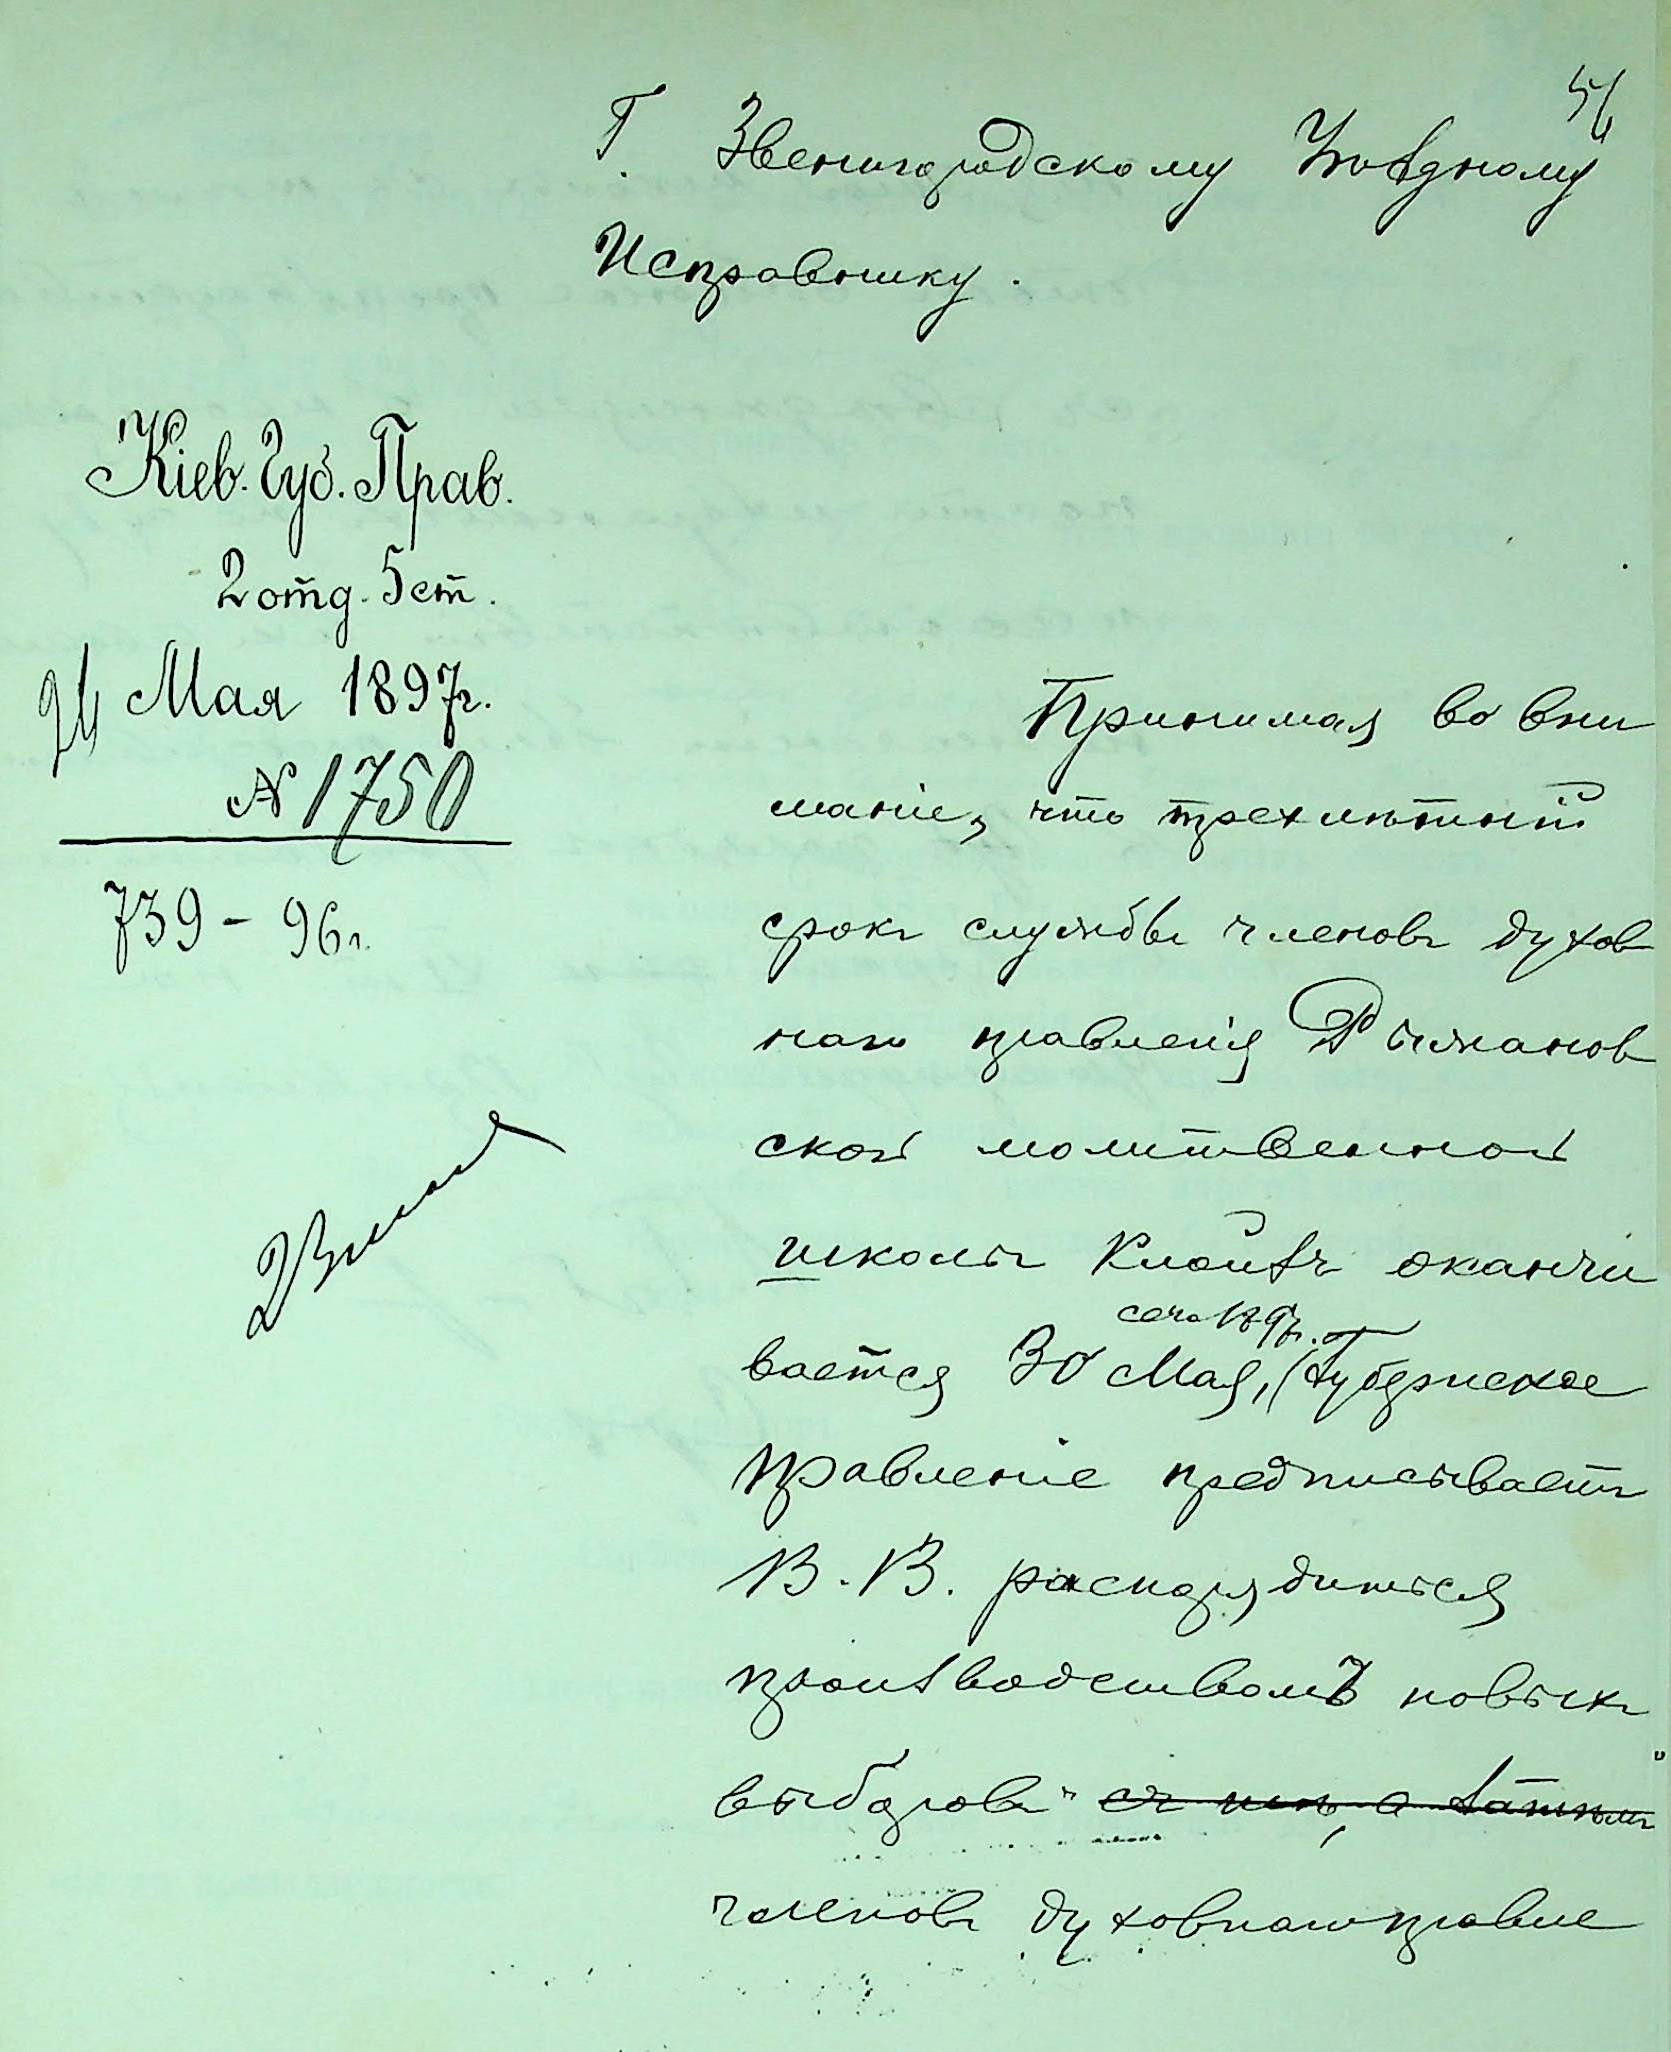 Г. Звенигородскому Уѣздному
Исправнику.
Кіев. Губ. Прав.
2 отд. 5 ст.
24 Мая 1897 г.
№ 1750
739 – 96 г.
Принимая во вни
маніе, что трехлѣтній
срокъ службы членовъ духов
наго правленія Рыжанов
ской молитвенной
школы Клойзъ оканчи
сего 1897 г.
вается 30 Мая, Губернское
правленіе предписываетъ
В. В. распорядиться
производствомъ новыхъ
выборовъ
членовъ духовнаго правле